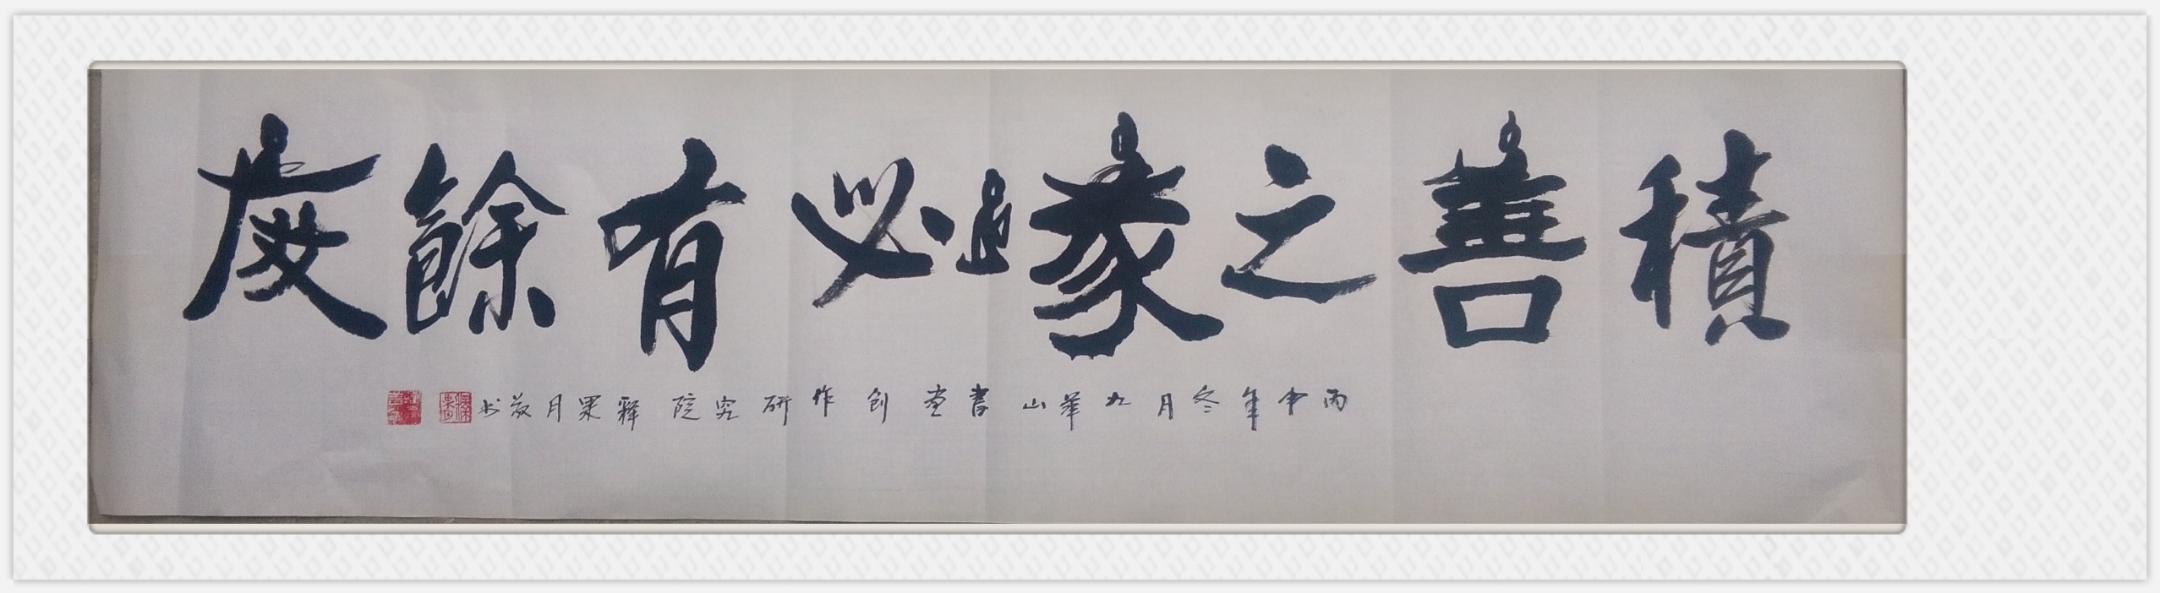 積善之家必有餘慶
丙申年冬月九華山書畫創作研究院釋果月敬书